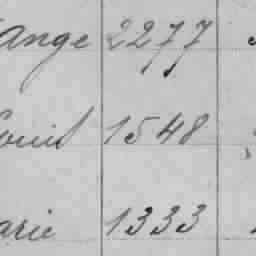 Ange 2277
Louis 1548
arie 1333